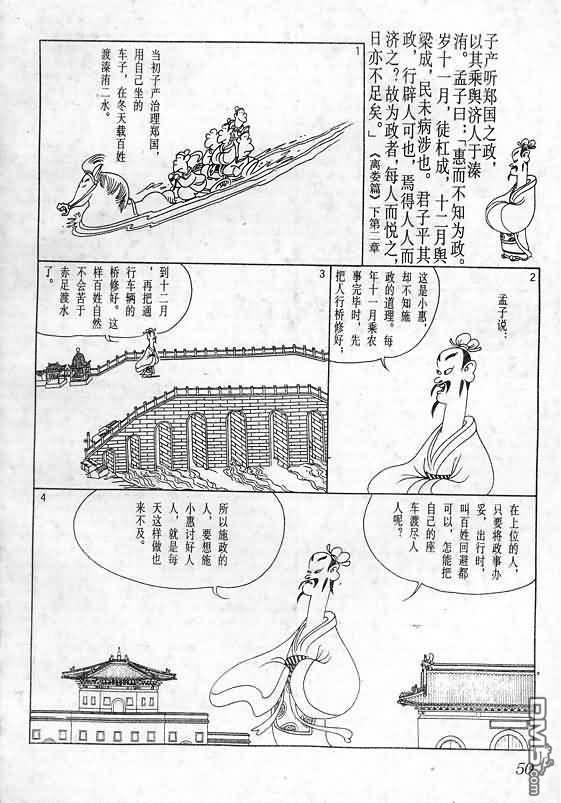 子产听郑国之政，
以其乘舆济人于溱
洧。孟子曰：「惠而不知为政。
岁十一月，徒杠成，十二月舆
梁成，民未病涉也。君子平其
政，行辟人可也，焉得人人而
济之？故为政者，每人而悦之，
日亦不足矣。」
《离娄篇》下第二章
1
当初子产治理郑国，
用自己坐的
车子，在冬天载百姓
渡溱洧二水。
2
孟子说：
这是小惠，
却不知施
政的道理。每
年十一月乘农
事完毕时，先
把人行桥修好；
3
到十二月
，再把通
行车辆的
桥修好。这
样百姓自然
不会苦于
赤足渡水
了。
4
在上位的人，
只要将政事办
妥，出行时，
叫百姓回避都
可以，怎能把
自己的座
车渡尽人
人呢？
所以施政的
人，要想施
小惠讨好人
人，就是每
天这样做也
来不及。
50
DM5.com